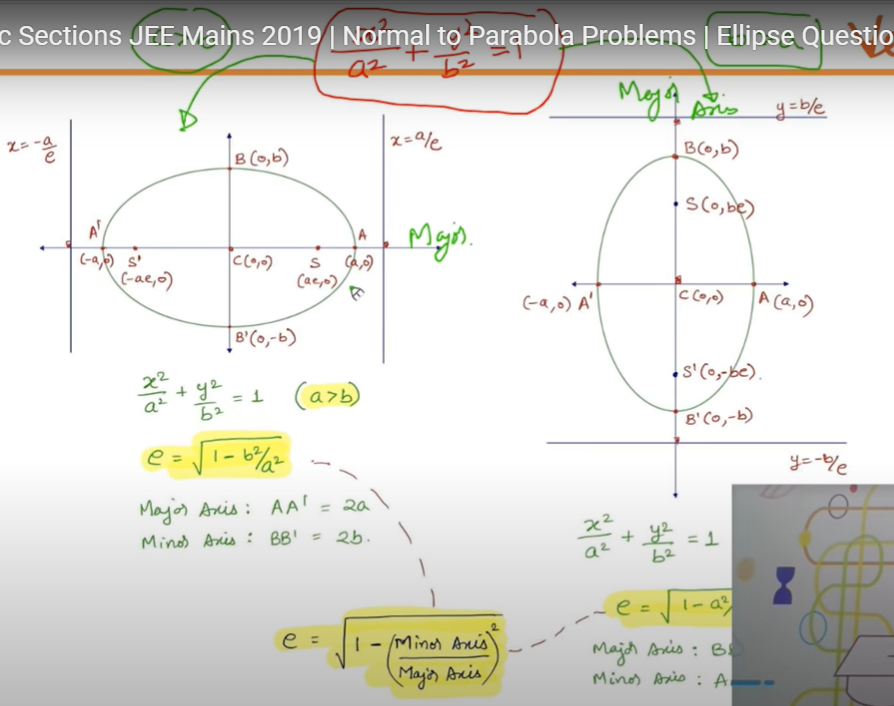 c Sections JEE Mains 2019 | Normal to Parabola Problems | Ellipse Questio
x²/a² + y²/b² = 1
x = -a/e
x = a/e
B(0,b)
A'
A
Major
(-a,0)
S'
C(0,0)
S
(a,0)
(-ae,0)
(ae,0)
B'(0,-b)
x²/a² + y²/b² = 1 (a>b)
e = √(1 - b²/a²)
Major Axis : AA' = 2a
Minor Axis : BB' = 2b.
e = √(1 - (Minor Axis/Major Axis)²)
Major Axis
y = b/e
B(0,b)
S(0,be)
(-a,0) A'
C(0,0)
A (a,0)
S'(0,-be).
B'(0,-b)
y = -b/e
x²/a² + y²/b² = 1
e = √(1 - a²/
Major Axis : B
Minor Axis : A